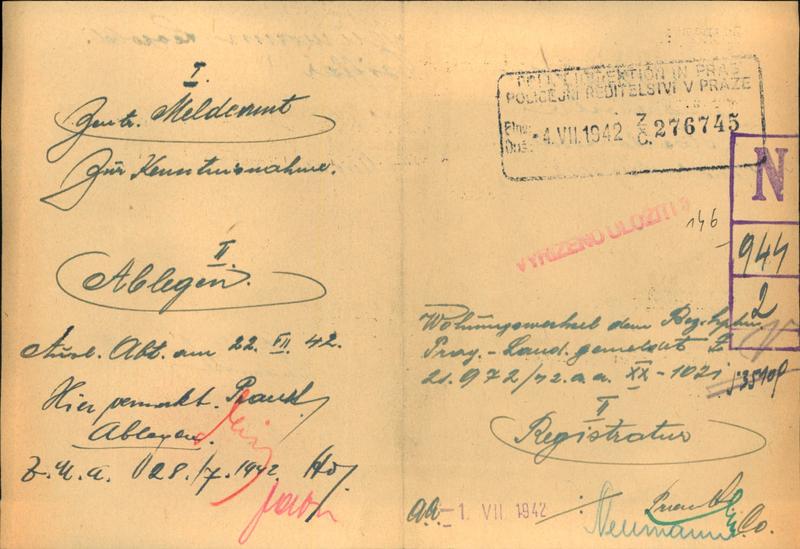 I.
Zentr. Meldeamt
Zur Kenntnisnahme.
II.
Ablegen.
Abt. am 22. VII. 42.
Hier
Ablegen.
28./7. 1942.
POLIZEIDIREKTION IN PRAG
POLICEJNÍ ŘEDITELSTVÍ V PRAZE
Došlo: -4. VII. 1942 Z. Č. 276745
N
VYŘÍZENO ULOŽITI
146
944
2
Wohnungswechsel dem
Prag.-Land. gemeldet Z
21.972/42 a.a. XX-1021
II
Registratur
-1. VII 1942
Neumann
Co.